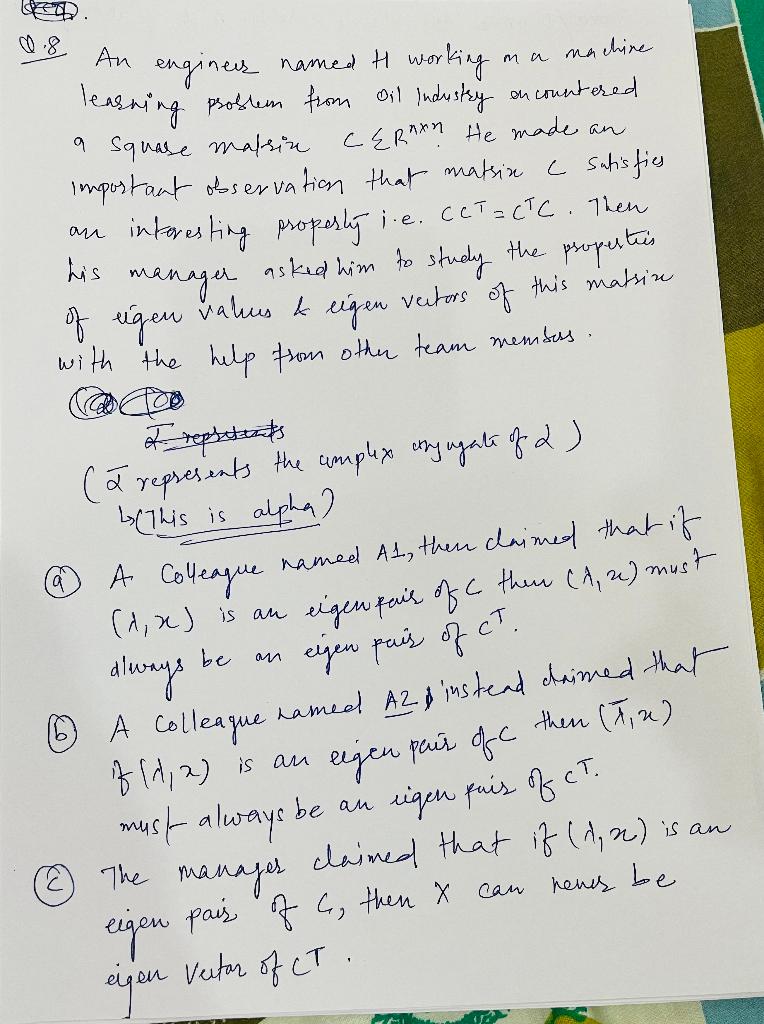 Q.8 An engineer named H working on a machine
learning problem from Oil Industry encountered
a square matrix C ∈ R^{n×n}. He made an
important observation that matrix C satisfies
an interesting property i.e. CC^T = C^TC. Then
his manager asked him to study the properties
of eigen values & eigen vectors of this matrix
with the help from other team members.
(ᾱ represents the complex conjugate of α)
↳(This is alpha)
(a) A Colleague named A1, then claimed that if
(λ, x) is an eigen pair of C then (λ, x) must
always be an eigen pair of C^T.
(b) A Colleague named A2 instead claimed that
if (λ, x) is an eigen pair of C then (λ̄, x)
must always be an eigen pair of C^T.
(c) The manager claimed that if (λ, x) is an
eigen pair of C, then X can never be
eigen vector of C^T.